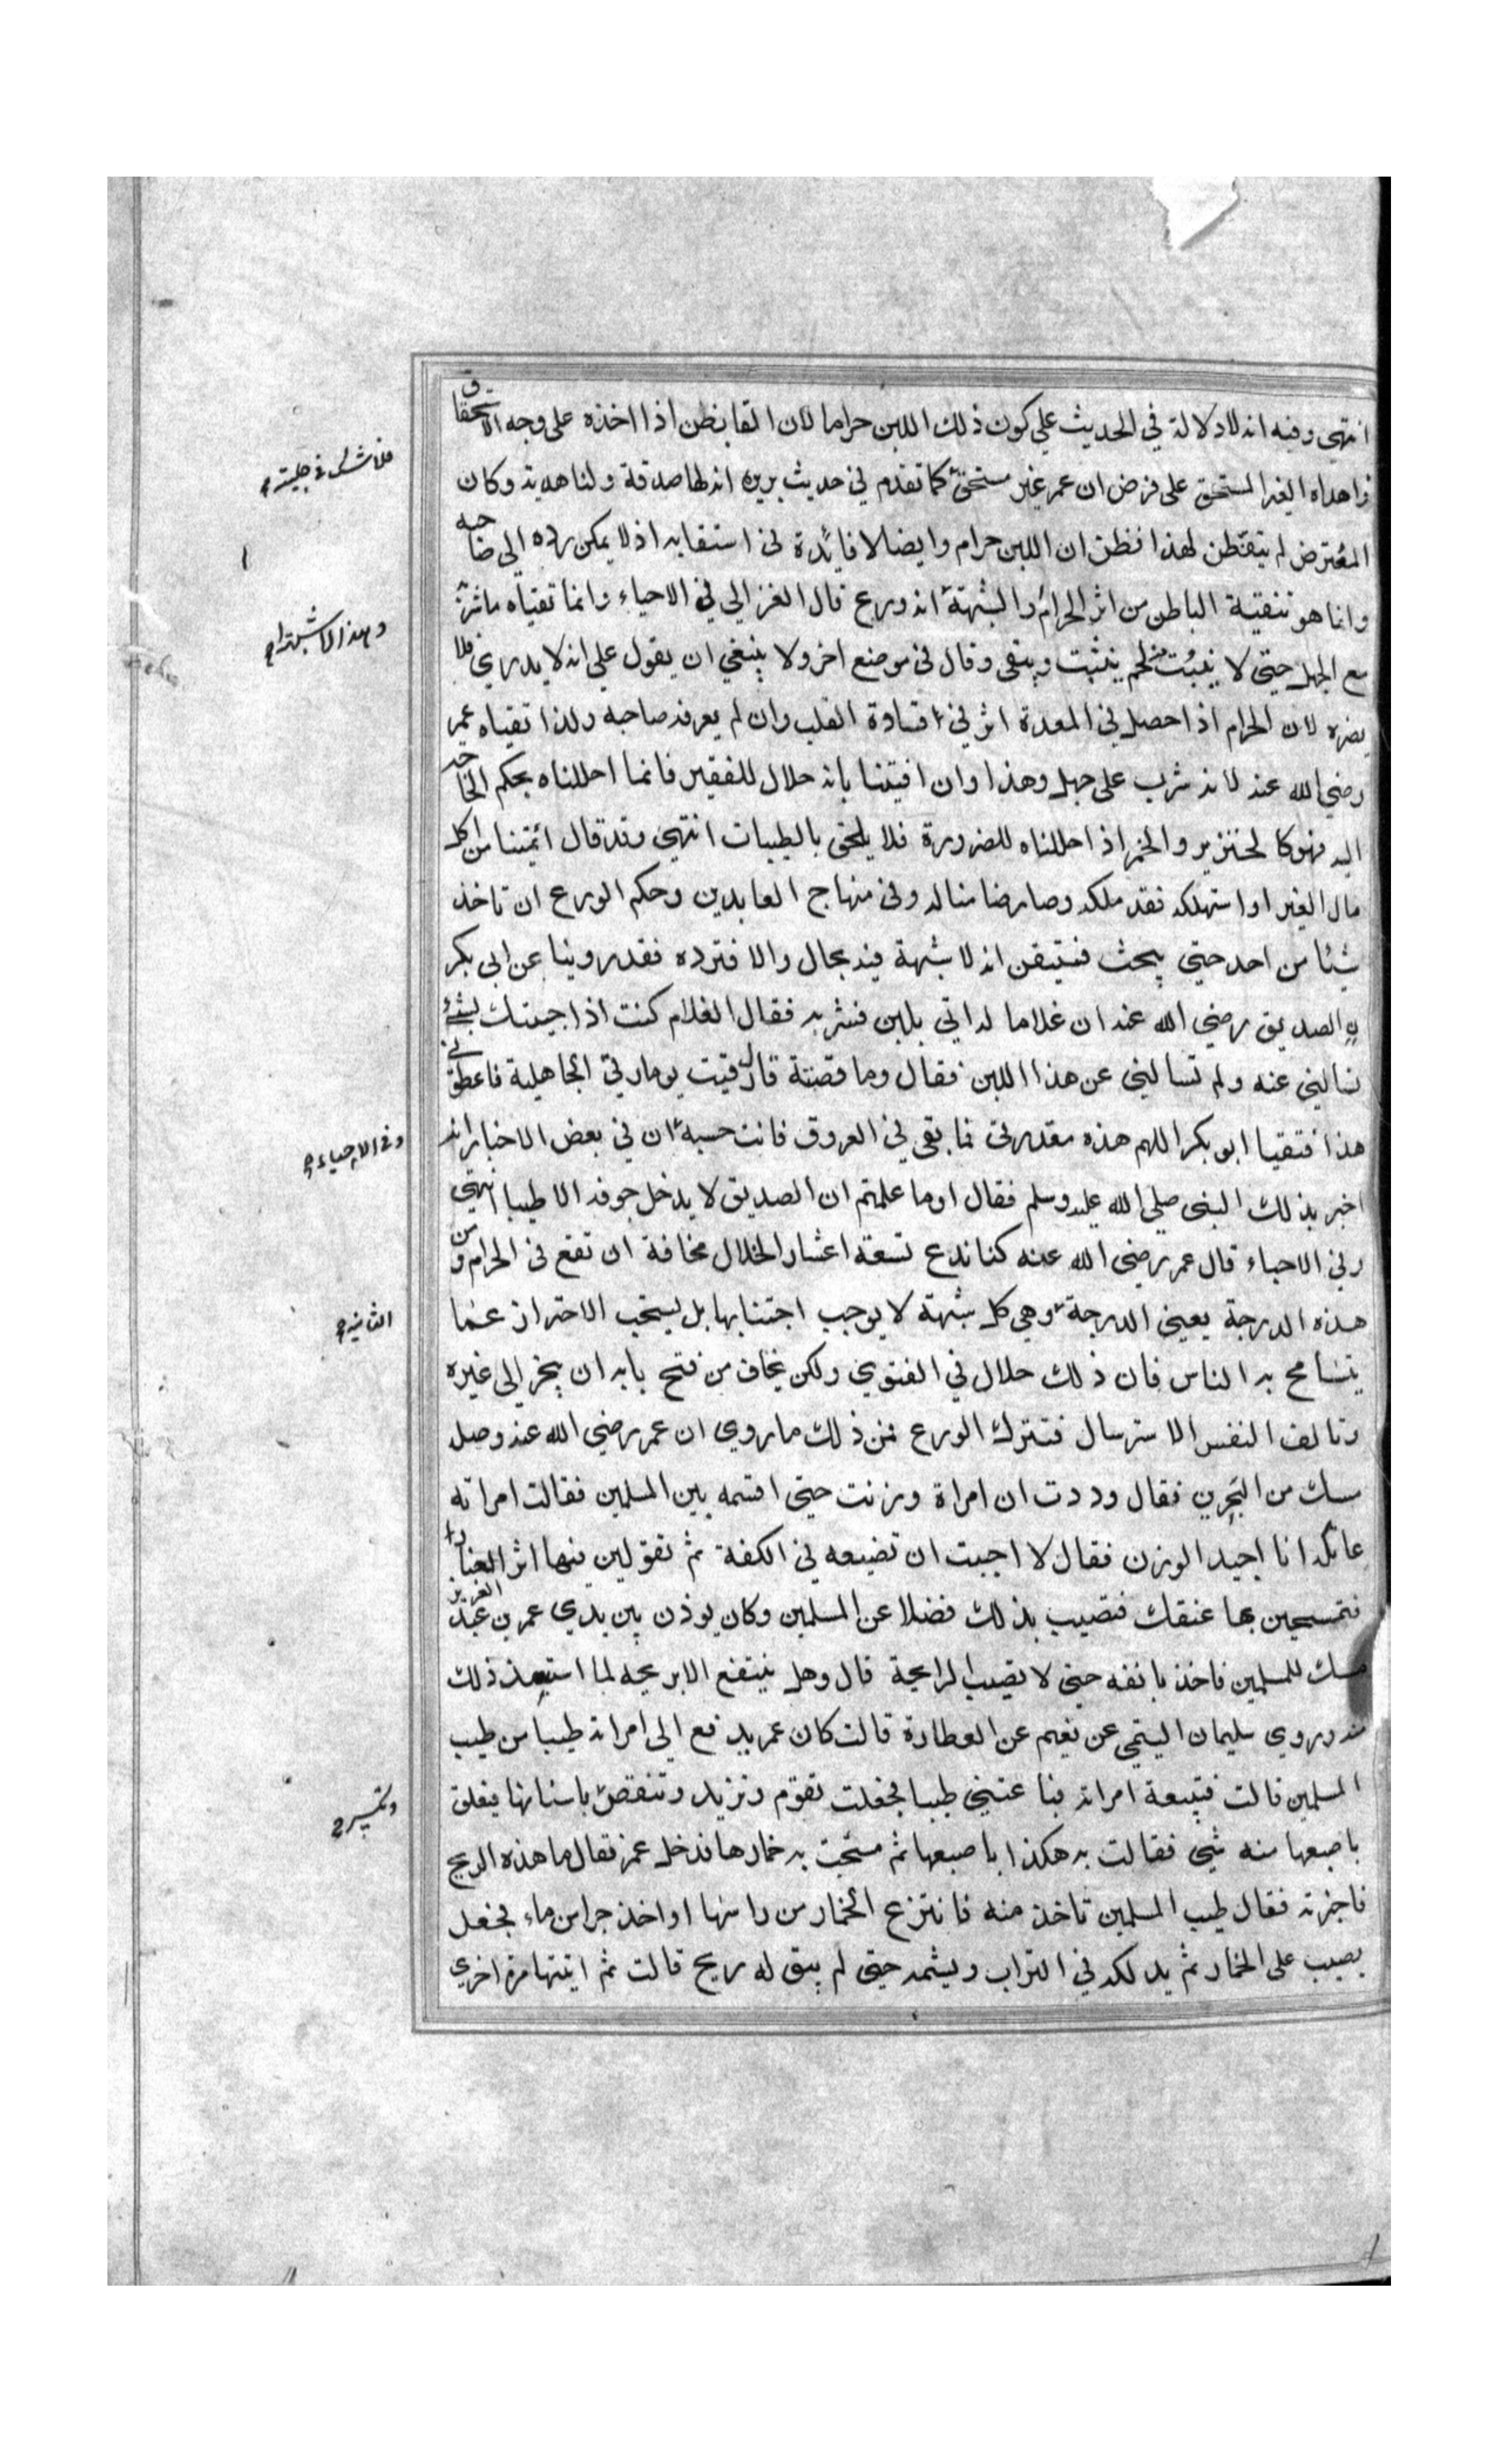 انتهي وفيه انه لا دلالة في الحديث علي كون ذلك اللبن حراما لان القابض ان اذا اخذه على وجه الاستحقاق
فلا شك في حليته
واهداه الغير المستحق على فرض ان عمر غير مستحق كما تقدم في حديث بريرة انه لها صدقة ولنا هدية وكان
المعترض لم يتفطن لهذا فظن ان اللبن حرام وايضا لا فائدة في استقايه اذ لا يمكن رده الي صاحبه
وانما هو تنقية الباطن من اثر الحرام والشبهة انه ورع قال الغزالي في الاحياء وانما تقياه ما شربه
مع الجهل حتي لا ينبت منه لحم يثبت ويبقى وقال في موضع اخر ولا ينبغي ان يقول علي انه لا يدري فلا
يضره لان الحرام اذا حصل في المعدة اثر في قساوة القلب وان لم يعرفه صاحبه ولذا تقياه عمر
رضي الله عنه لانه شرب على جهل وهذا وان افتينا بانه حلال للفقير فانما احللناه بحكم الحاجة
اليه فهو كالخنزير والخمر اذ احللناه للضرورة فلا يلحق بالطيبات انتهي وقد قال ائمتنا من اكل
مال الغير او استهلكه فقد ملكه وصار ضامنا له وفي منهاج العابدين وحكم الورع ان تاخذ
شيئا من احد حتي يبحث فتيقن انه لا شبهة فيه بحال والا فترده فقد روينا عن ابي بكر
الصديق رضي الله عنه ان غلاما له اتي بلبن فشربه فقال الغلام كنت اذا جيتك بشئ
تسالني عنه ولم تسالني عن هذا اللبن فقال وما قصته قال رقيت يوما رقي الجاهلية فاعطوني
هذا فتقيا ابو بكر اللهم هذه مقدرتي فما بقي في العروق فانت حسبه ان في بعض الاخبار انه
وفي الاحياء
اخبر بذلك النبي صلي الله عليه وسلم فقال اوما علمتم ان الصديق لا يدخل جوفه الا طيبا انتهي
وفي الاحياء قال عمر رضي الله عنه كنا ندع تسعة اعشار الحلال مخافة ان تقع في الحرام ومن
هذه الدرجة يعني الدرجة وهي كل شبهة لا يوجب اجتنابها بل يستحب الاحتراز عما
الثانية
يتسامح به الناس فان ذلك حلال في الفتوي ولكن يخاف من فتح بابه ان ينجر الي غيره
وتالف النفس الاسترسال فتترك الورع فمن ذلك ما روي ان عمر رضي الله عنه وصل
مسك من البحرين فقال وددت ان امراة وزنت حتي اقسمه بين المسلمين فقالت امراته
عاتكه انا اجيد الوزن فقال لا احببت ان تضيعه في الكفة ثم تقولين فيها اثر الغبار
فتمسحين بها عنقك فتصيب بذلك فضلا عن المسلمين وكان يوزن بين يدي عمر بن عبد العزيز
مسك للمسلمين فاخذ بانفه حتي لا تصيبه الرايحة قال وهل ينتفع الا بريحه لما استبعد ذلك
منه وروي سليمان التيمي عن نعيم عن العطارة قالت كان عمر يدفع الي امراته طيبا من طيب
المسلمين قالت فتبيعه امراته فباعتني طيبا فجعلت تقوم وتزيد وتنقص باسنانها فيعلق
وتكسر
باصبعها منه شئ فقالت به هكذا باصبعها ثم مسحت به خمارها فدخل عمر فقال ما هذه الريح
فاخبرته فقال طيب المسلمين تاخذ منه فانتزع الخمار من راسها او اخذ جرا من ماء فجعل
يصب على الخمار ثم يدلكه في التراب ويشمه حتي لم يبق له ريح قالت ثم اتيتها مرة اخري